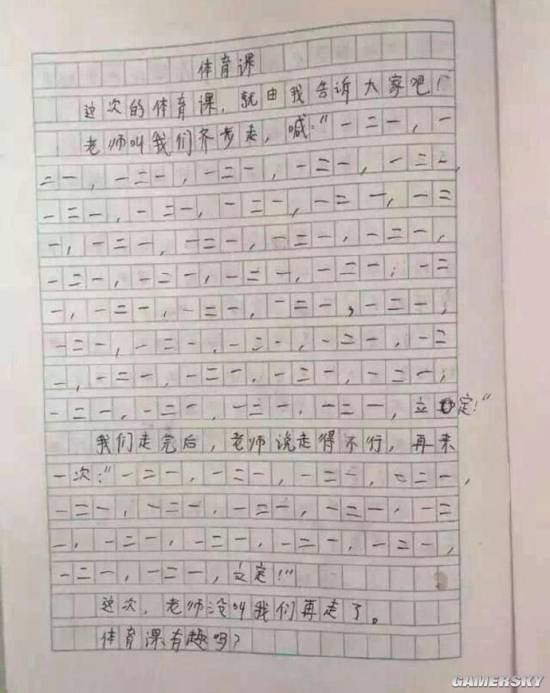 体育课
这次的体育课，就由我告诉大家吧！
老师叫我们齐步走，喊：“一二一，一
二一，一二一，一二一，一二一，一二一，
一二一，一二一，一二一，一二一，一二
一，一二一，一二一，一二一，一二一，
一二一，一二一，一二一，一二一，一二
一，一二一，一二一，一二一，一二一，
一二一，一二一，一二一，一二一，一二
一，一二一，一二一，一二一，一二一，
一二一，一二一，一二一，一二一，立定！”
我们走完后，老师说走得不行，再来
一次：“一二一，一二一，一二一，一二一，
一二一，一二一，一二一，一二一，一二
一，一二一，一二一，一二一，一二一，
一二一，一二一，立定！”
这次，老师没叫我们再走了。
体育课有趣吗？
GAMERSKY